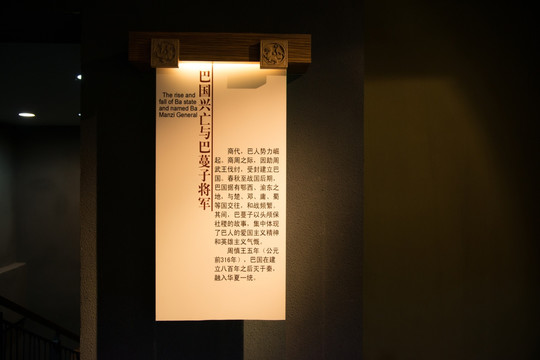 巴国兴亡与巴蔓子将军
The rise and
fall of Ba state
and named Ba
Manzi General
商代，巴人势力崛
起。商周之际，因助周
武王伐纣，受封建立巴
国。春秋至战国后期，
巴国据有鄂西、渝东之
地，与楚、邓、庸、蜀
等国交往，和战频繁。
其间，巴蔓子以头颅保
社稷的故事，集中体现
了巴人的爱国主义精神
和英雄主义气慨。
周慎王五年（公元
前316年），巴国在建
立八百年之后灭于秦，
融入华夏一统。